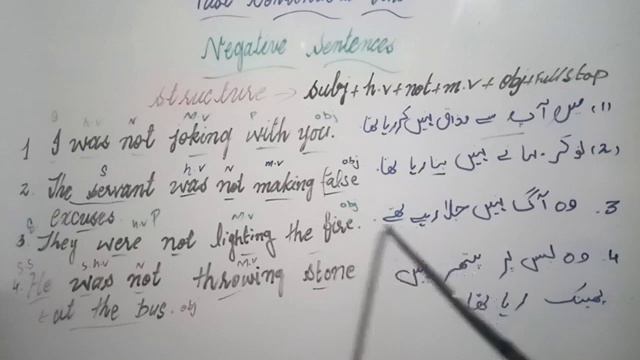 Past Continuous
Negative Sentences
structure → subj + h.v + not + m.v + obj + full stop
s h.v N m.v P obj
1 I was not joking with you.
(1) میں آپ سے مذاق نہیں کر رہا تھا
s h.v N m.v obj
2. The servant was not making false
excuses.
(2) نوکر بہانے نہیں بنا رہا تھا.
s h.v m.v obj
3. They were not lighting the fire.
3. وہ آگ نہیں جلا رہے تھے.
h.v m.v
4. He was not throwing stone
at the bus. obj
4. وہ بس پر پتھر نہیں
پھینک رہا تھا